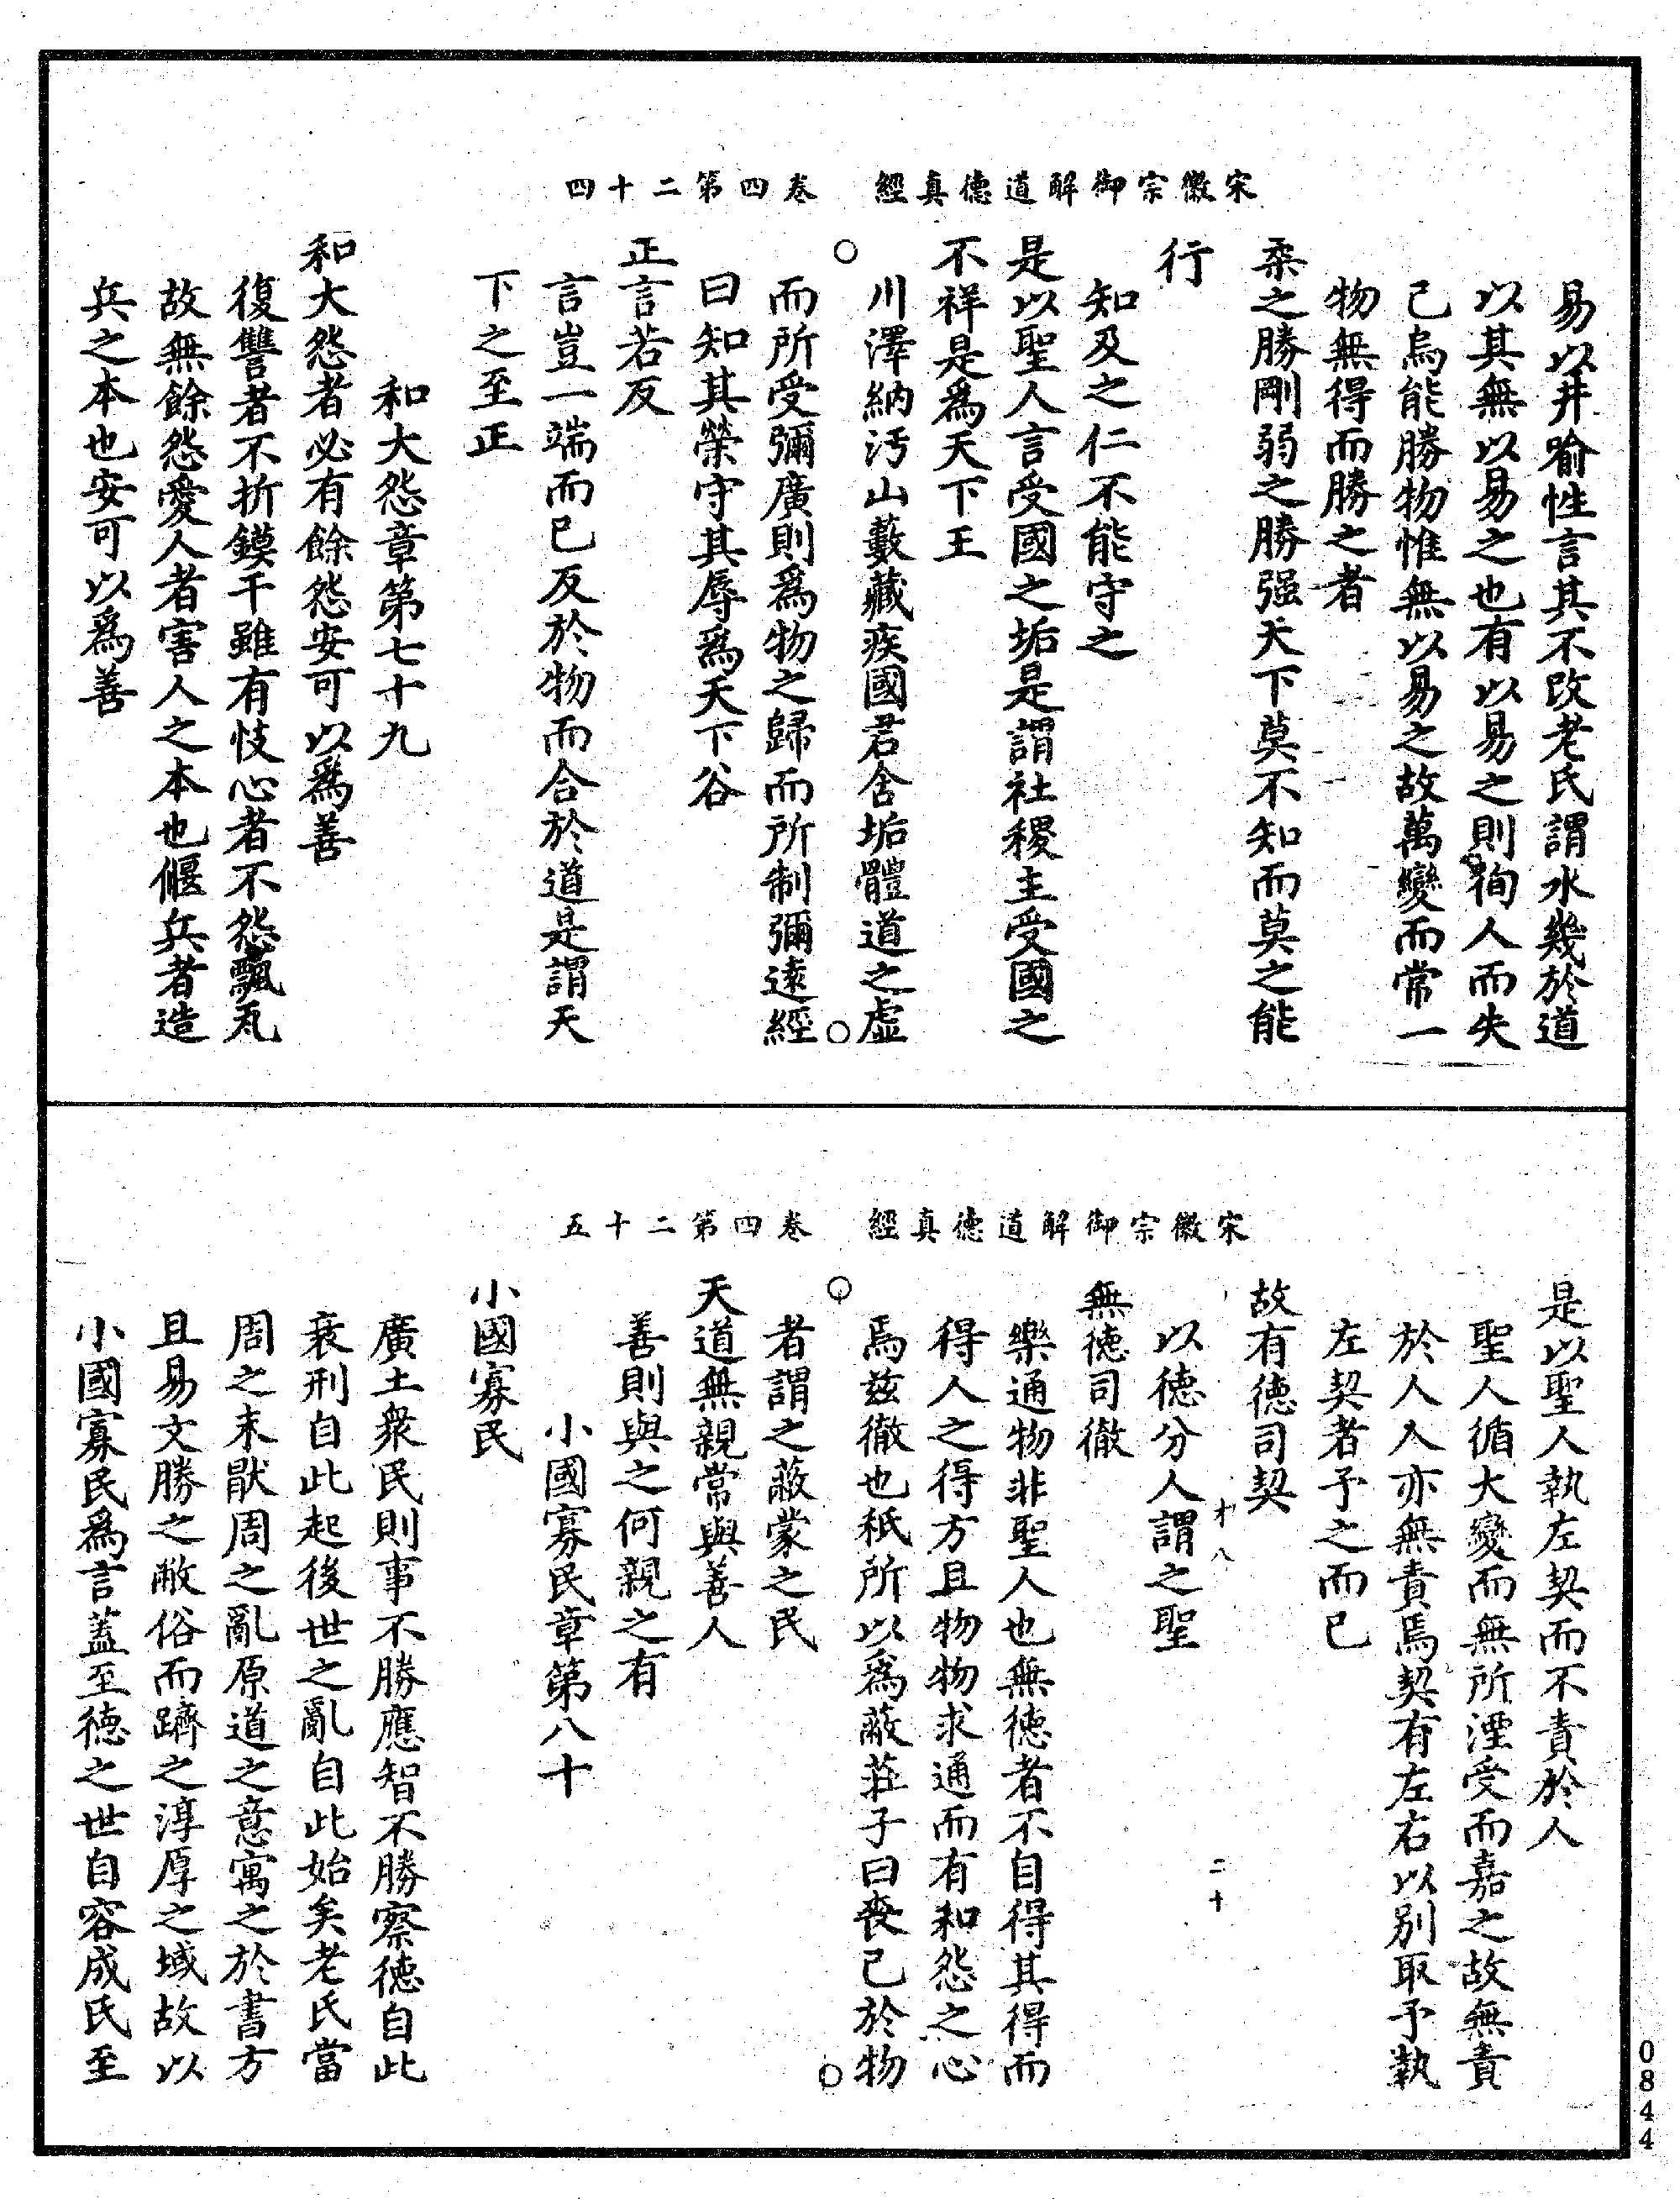 宋徽宗御解道德真經　卷四第二十四
易以井喻性言其不改老氏謂水幾於道
以其無以易之也有以易之則徇人而失
己烏能勝物惟無以易之故萬變而常一
物無得而勝之者
柔之勝剛弱之勝强天下莫不知而莫之能
行
知及之仁不能守之
是以聖人言受國之垢是謂社稷主受國之
不祥是爲天下王
川澤納汚山藪藏疾國君含垢體道之虛
而所受彌廣則爲物之歸而所制彌遠經
曰知其榮守其辱爲天下谷
正言若反
言豈一端而已反於物而合於道是謂天
下之至正
和大怨章第七十九
和大怨者必有餘怨安可以爲善
復讐者不折鏌干雖有忮心者不怨飄瓦
故無餘怨愛人者害人之本也偃兵者造
兵之本也安可以爲善
宋徽宗御解道德真經　卷四第二十五
是以聖人執左契而不責於人
聖人循大變而無所湮受而嘉之故無責
於人人亦無責焉契有左右以別取予執
左契者予之而已
故有德司契
以德分人謂之聖
十八
二十
無德司徹
樂通物非聖人也無德者不自得其得而
得人之得方且物物求通而有和怨之心
焉茲徹也秖所以爲蔽莊子曰喪己於物
者謂之蔽蒙之民
天道無親常與善人
善則與之何親之有
小國寡民章第八十
小國寡民
廣土衆民則事不勝應智不勝察德自此
衰刑自此起後世之亂自此始矣老氏當
周之末猒周之亂原道之意寓之於書方
且易文勝之敝俗而躋之淳厚之域故以
小國寡民爲言蓋至德之世自容成氏至
0844